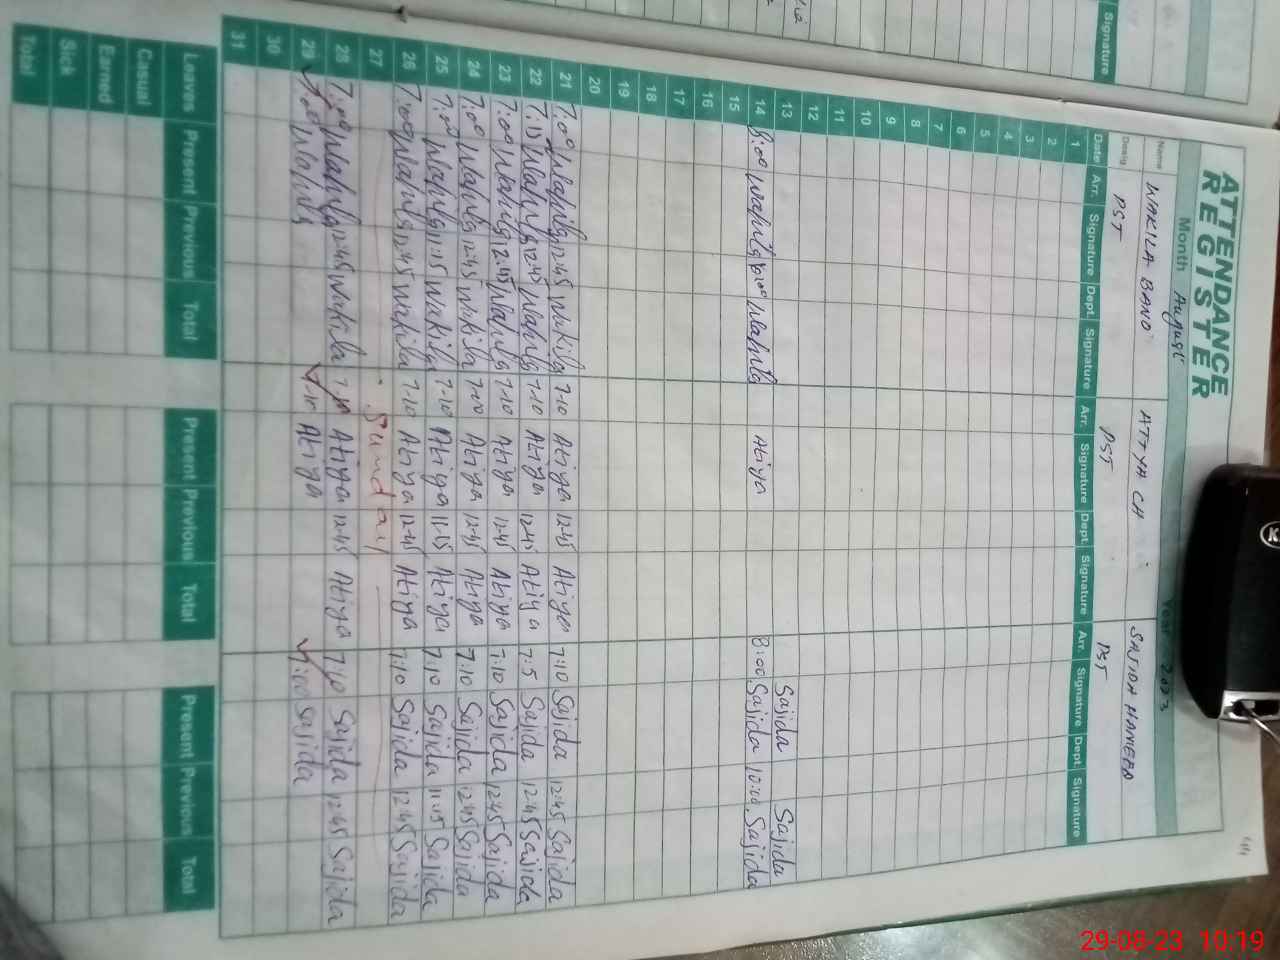 Signature
ATTENDANCE
REGISTER
Month August Year 2023
Name WAKILA BANO ATTYA CH SAJIDA HAMEED
Desig PST PST PST
Date Arr. Signature Dept. Signature Arr. Signature Dept. Signature Arr. Signature Dept. Signature
1
2
3
4
5
6
7
8
9
10
11
12
13 Sajida Sajida
14 8:00 Wakila 10:00 Wakila Atiya 8:00 Sajida 10:00 Sajida
15
16
17
18
19
20
21 7:00 Wakila 12:45 Wakila 7-10 Atiya 12:45 Atiya 7:10 Sajida 12:45 Sajida
22 7:15 Wakila 12:45 Wakila 7-10 Atiya 12:45 Atiya 7:5 Sajida 12:45 Sajida
23 7:00 Wakila 12:45 Wakila 7-10 Atiya 12:45 Atiya 7:10 Sajida 12:45 Sajida
24 7:00 Wakila 12:45 Wakila 7-00 Atiya 12-45 Atiya 7:10 Sajida 12:45 Sajida
25 7:00 Wakila 11:15 Wakila 7-10 Atiya 11-15 Atiya 7:10 Sajida 11:15 Sajida
26 7:00 Wakila 12:45 Wakila 7-10 Atiya 12-45 Atiya 7:10 Sajida 12:45 Sajida
27 Sunday
28 7:00 Wakila 12:45 Wakila 7-10 Atiya 12:45 Atiya 7:10 Sajida 12:45 Sajida
29 7:00 Wakila 7-10 Atiya 7:00 Sajida
30
31
Leaves Present Previous Total Present Previous Total Present Previous Total
Casual
Earned
Sick
Total
29-08-23 10:19